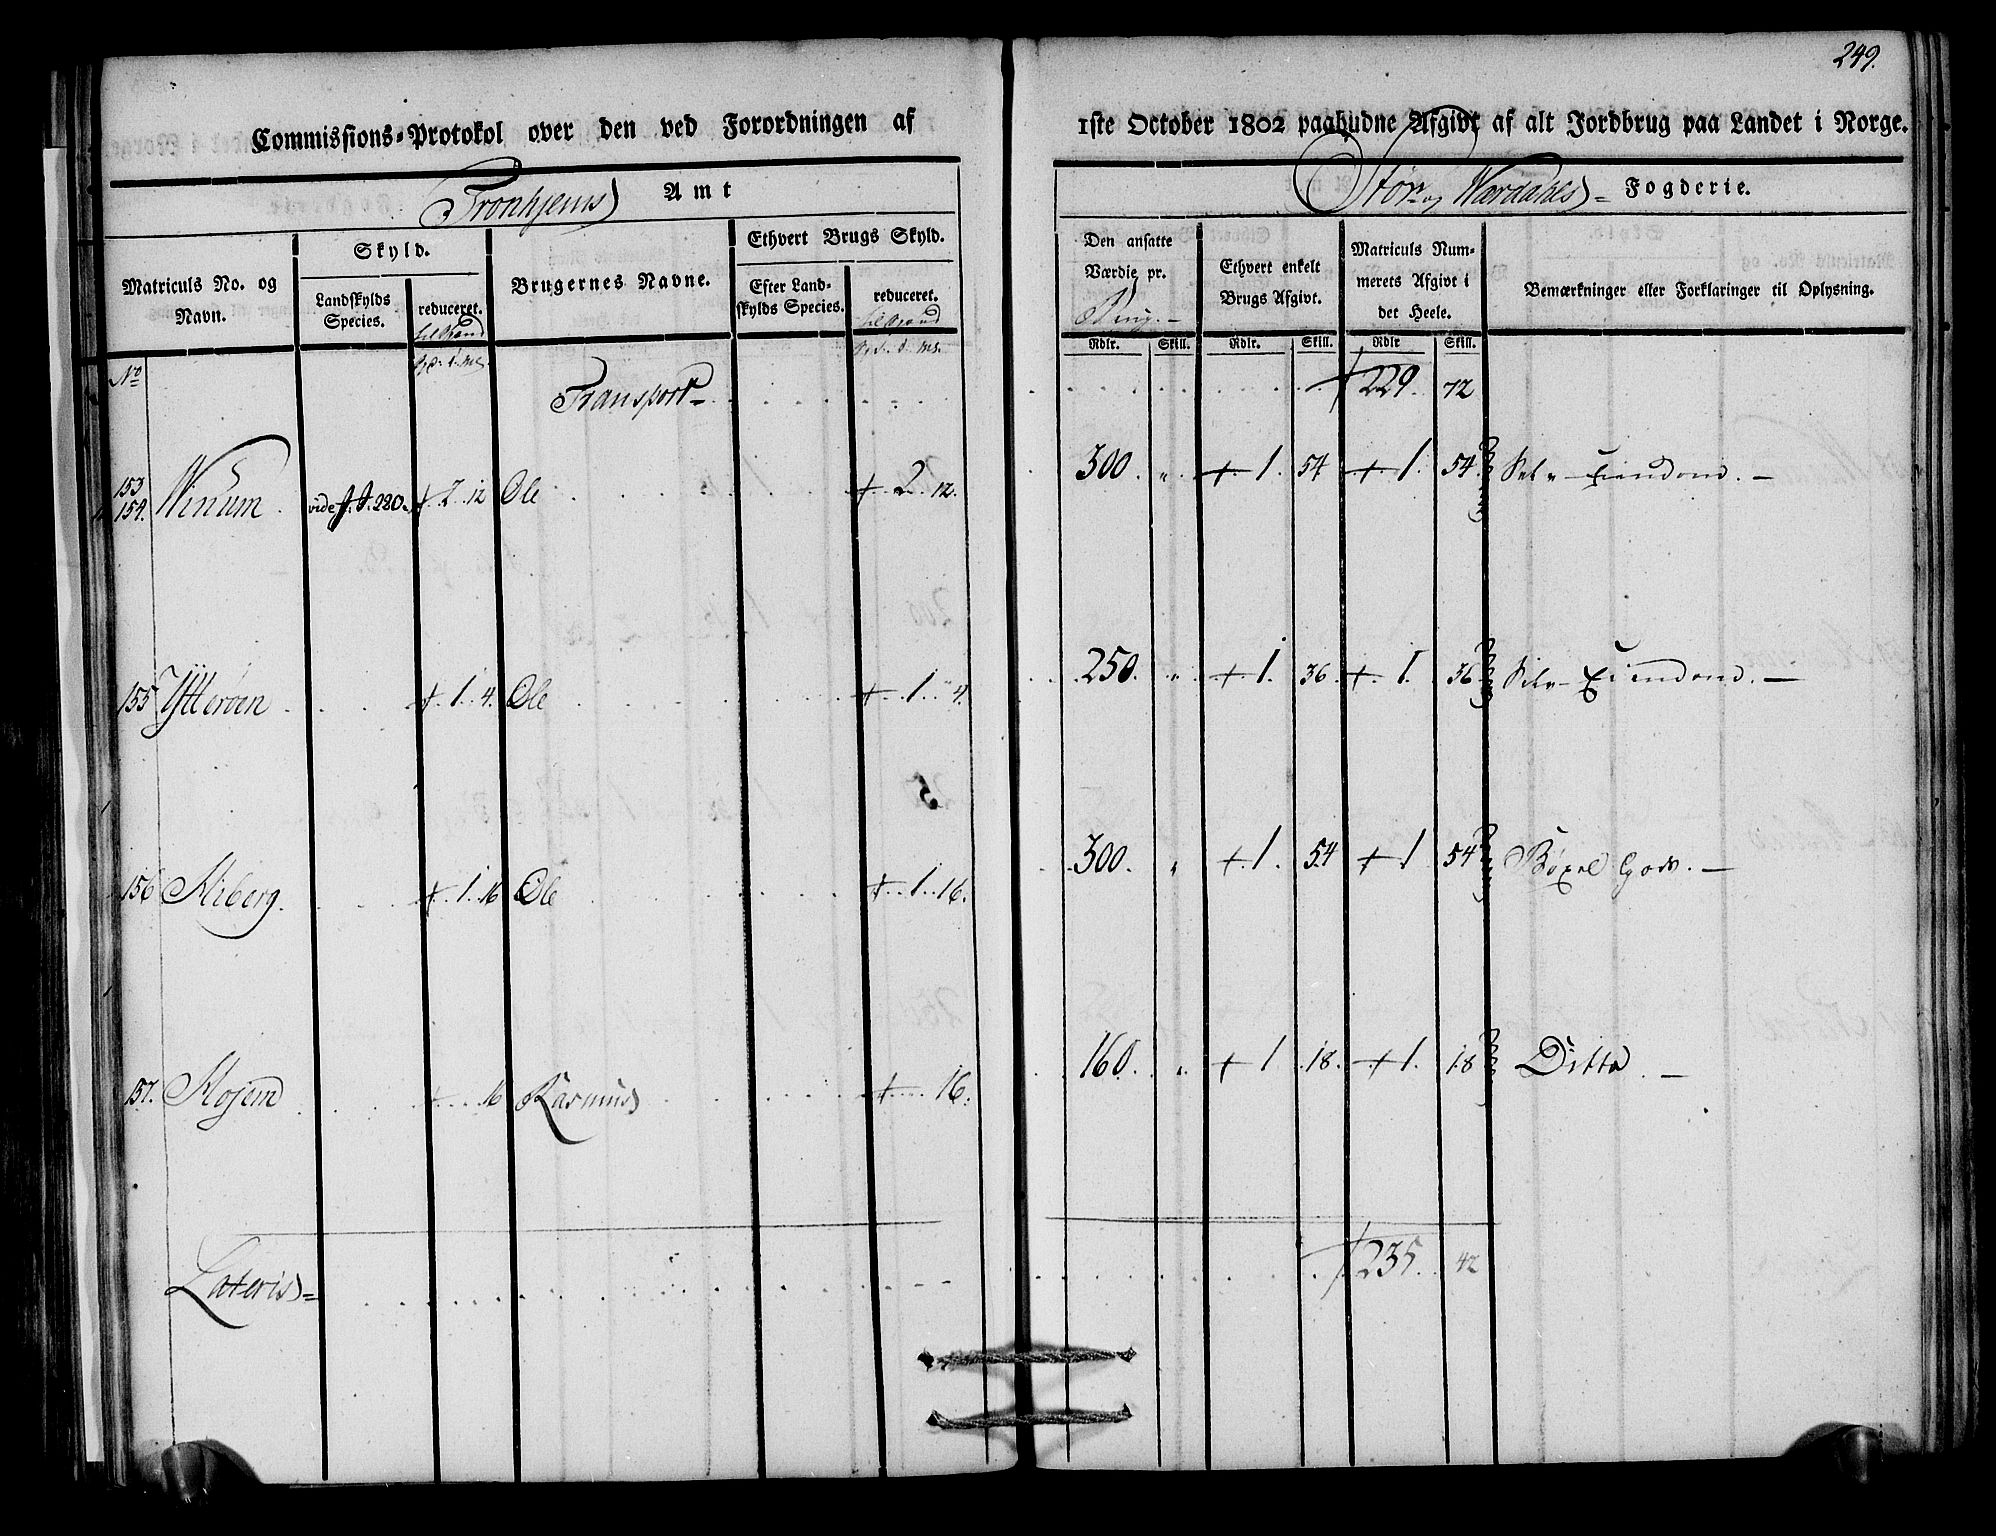 249.
Commissions-Protokol over den ved Forordningen af 1ste October 1802 paabudne Afgivt af alt Jordbrug paa Landet i Norge.
Tronhjems Amt
Stør- og Værdahls Fogderie.
Matriculs No. og Navn.
Skyld.
Landskylds Species.
reduceret.
Brugernes Navne.
Ethvert Brugs Skyld.
Efter Landskylds Species.
reduceret.
Den ansatte Værdie pr.
Ethvert enkelt Brugs Afgivt.
Matriculs Nummerets Afgivt i det Heele.
Bemærkninger eller Forklaringer til Oplysning.
Rdlr. Skill. Rdlr. Skill. Rdlr Skill.
No
Transport 229. 72
153 154. Winum vide 280. 2 12 Ole 2. 12. 300. 1. 54 1. 54 Selv Eiendom.
155 Ytterøen 1. 4. Ole 1. 4. 250. 1. 36. 1. 36 Selv Eiendom.
156 Kiberg. 1. 16 Ole 1. 16. 300. 1. 54 1 54 Bøxel Gods.
157. Kojem 16 Rasmus 16. 160. 1 18. 1. 18 Ditto.
Lateris 235. 42